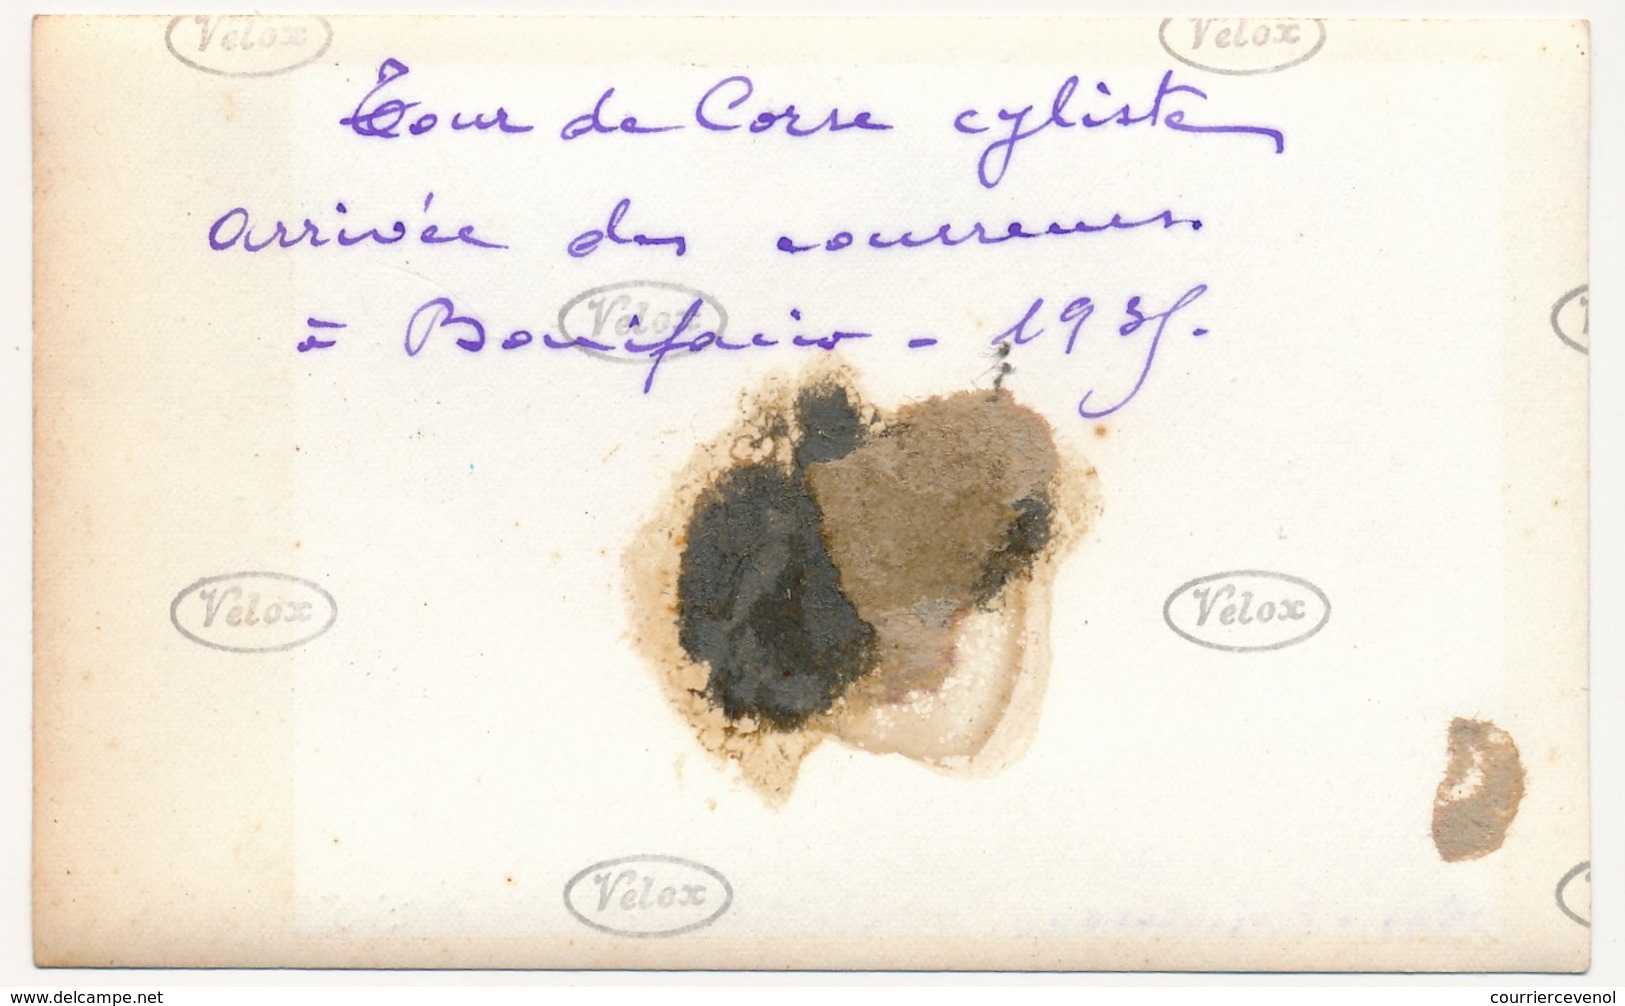 Velox Velox
Tour de Corse cyliste
arrivée des coureurs
à Bonifacio - 1935.
Velox
Velox Velox
Velox
courriercevenol
www.delcampe.net courriercevenol